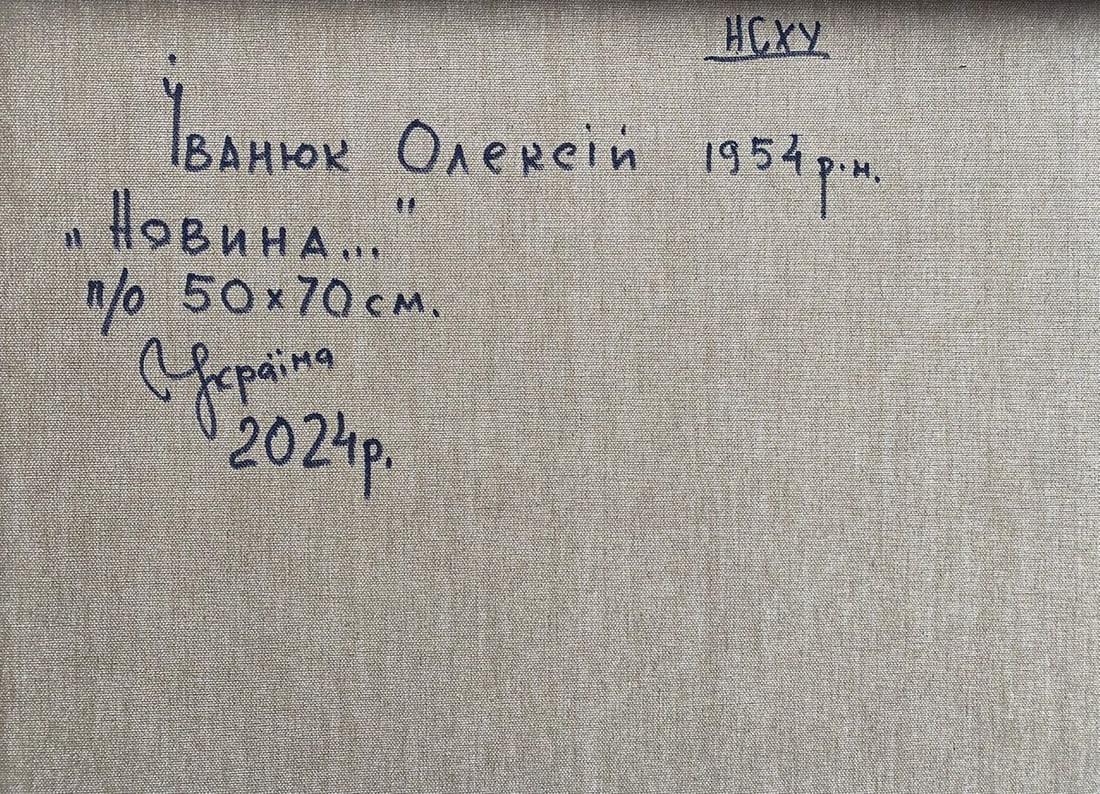 НСХУ
Іванюк Олексій 1954 р.н.
„Новина..."
п/о 50х70 см.
Україна
2024р.